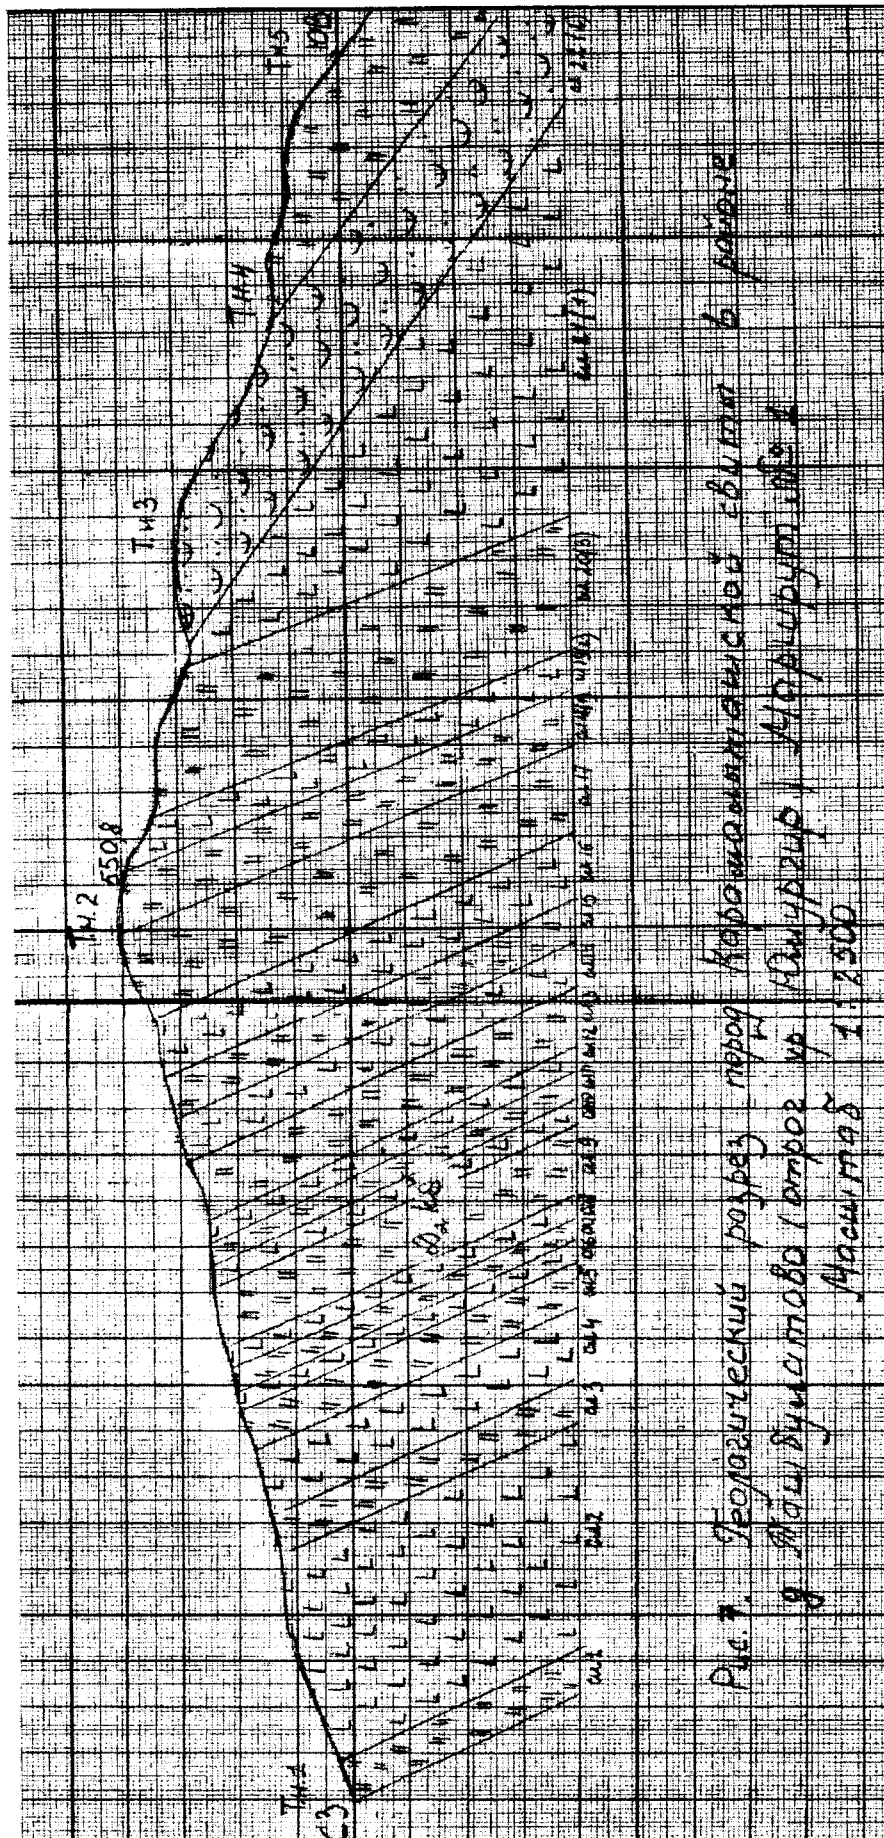 СЗ
Т.н.1
Т.н.2
550,8
Т.н.3
Т.н.4
Т.н.5
ЮВ
D₂ kb
сл.1
сл.2
сл.3
сл.4
сл.5
сл.9
сл.12
сл.15
сл.16
сл.17
сл.21(1)
сл.22(2)
Рис. 7. Геологический разрез пород Карамалыташской свиты в районе
д Ташбулатово (отрог хр Кумургир) Маршрут № 1
Масштаб 1:2500